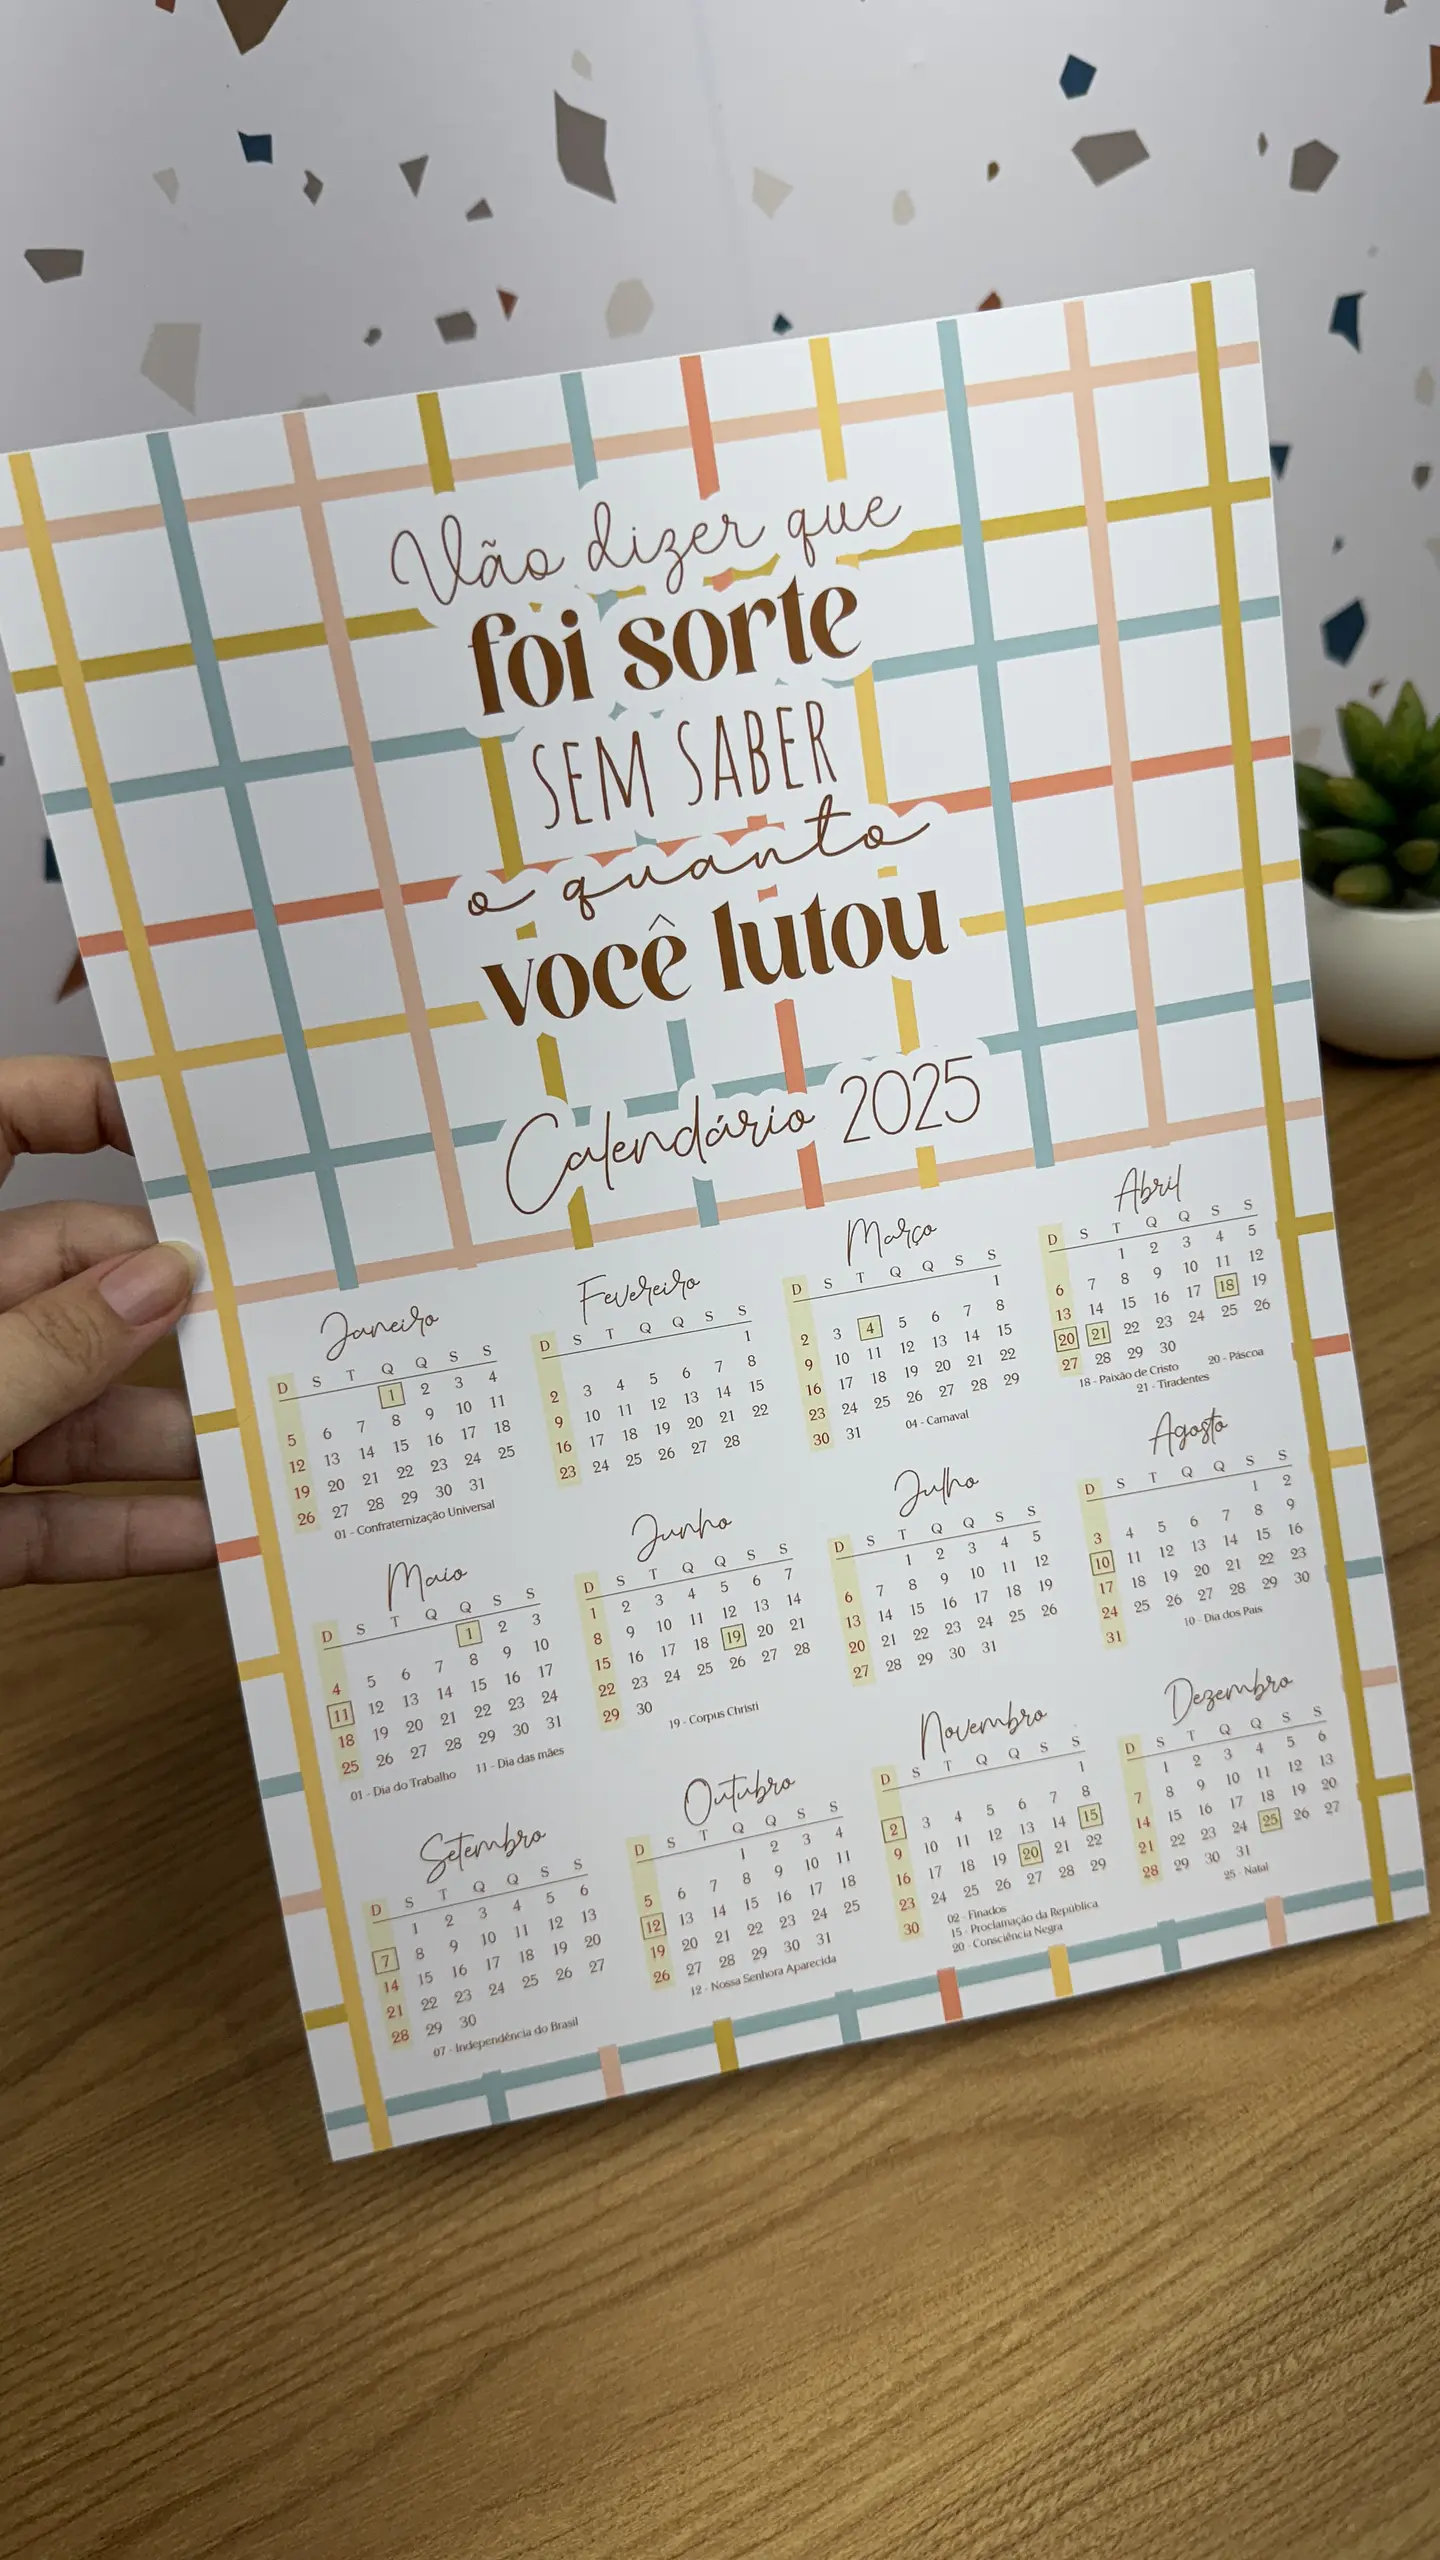 Vão dizer que
foi sorte
SEM SABER
o quanto
você lutou
Calendário 2025
Janeiro
D S T Q Q S S
1 2 3 4
5 6 7 8 9 10 11
12 13 14 15 16 17 18
19 20 21 22 23 24 25
26 27 28 29 30 31
01 - Confraternização Universal
Fevereiro
D S T Q Q S S
1
2 3 4 5 6 7 8
9 10 11 12 13 14 15
16 17 18 19 20 21 22
23 24 25 26 27 28
Março
D S T Q Q S S
1
2 3 4 5 6 7 8
9 10 11 12 13 14 15
16 17 18 19 20 21 22
23 24 25 26 27 28 29
30 31
04 - Carnaval
Abril
D S T Q Q S S
1 2 3 4 5
6 7 8 9 10 11 12
13 14 15 16 17 18 19
20 21 22 23 24 25 26
27 28 29 30
18 - Paixão de Cristo 20 - Páscoa
21 - Tiradentes
Maio
D S T Q Q S S
1 2 3
4 5 6 7 8 9 10
11 12 13 14 15 16 17
18 19 20 21 22 23 24
25 26 27 28 29 30 31
01 - Dia do Trabalho 11 - Dia das mães
Junho
D S T Q Q S S
1 2 3 4 5 6 7
8 9 10 11 12 13 14
15 16 17 18 19 20 21
22 23 24 25 26 27 28
29 30
19 - Corpus Christi
Julho
D S T Q Q S S
1 2 3 4 5
6 7 8 9 10 11 12
13 14 15 16 17 18 19
20 21 22 23 24 25 26
27 28 29 30 31
Agosto
D S T Q Q S S
1 2
3 4 5 6 7 8 9
10 11 12 13 14 15 16
17 18 19 20 21 22 23
24 25 26 27 28 29 30
31
10 - Dia dos Pais
Setembro
D S T Q Q S S
1 2 3 4 5 6
7 8 9 10 11 12 13
14 15 16 17 18 19 20
21 22 23 24 25 26 27
28 29 30
07 - Independência do Brasil
Outubro
D S T Q Q S S
1 2 3 4
5 6 7 8 9 10 11
12 13 14 15 16 17 18
19 20 21 22 23 24 25
26 27 28 29 30 31
12 - Nossa Senhora Aparecida
Novembro
D S T Q Q S S
1
2 3 4 5 6 7 8
9 10 11 12 13 14 15
16 17 18 19 20 21 22
23 24 25 26 27 28 29
30
02 - Finados
15 - Proclamação da República
20 - Consciência Negra
Dezembro
D S T Q Q S S
1 2 3 4 5 6
7 8 9 10 11 12 13
14 15 16 17 18 19 20
21 22 23 24 25 26 27
28 29 30 31
25 - Natal